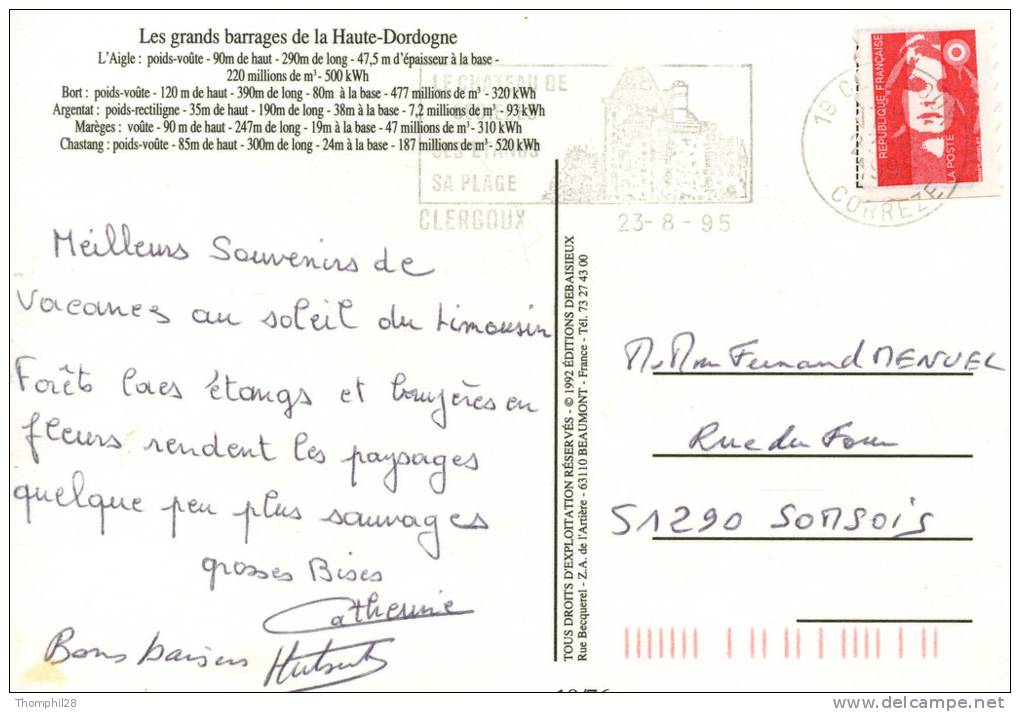 Les grands barrages de la Haute-Dordogne
L'Aigle : poids-voûte - 90m de haut - 290m de long - 47,5 m d'épaisseur à la base -
220 millions de m³ - 500 kWh
Bort : poids-voûte - 120 m de haut - 390m de long - 80m à la base - 477 millions de m³ - 320 kWh
Argentat : poids-rectiligne - 35m de haut - 190m de long - 38m à la base - 7,2 millions de m³ - 93 kWh
Marèges : voûte - 90 m de haut - 247m de long - 19m à la base - 47 millions de m³ - 310 kWh
Chastang : poids-voûte - 85m de haut - 300m de long - 24m à la base - 187 millions de m³ - 520 kWh
LE CHATEAU DE
SES ETANGS
SA PLAGE
CLERGOUX
23-8-95
CORREZE
REPUBLIQUE FRANÇAISE
LA POSTE
Meilleurs Souvenirs de
Vacances au soleil du Limousin
Forêts lacs étangs et bruyères en
fleurs rendent les paysages
quelque peu plus sauvages
grosses Bises
Catherine
Bons baisers Hubert
TOUS DROITS D'EXPLOITATION RÉSERVÉS - © 1992 ÉDITIONS DEBAISIEUX
Rue Becquerel - Z.A. de l'Artière - 63110 BEAUMONT - France - Tél. 73 27 43 00
M. Mme Fernand MENUEL
Rue du Four
51290 SOMSOIS
Thomphil28
delcampe.net